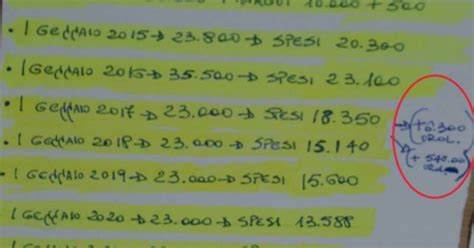 10.000 + 500
• 1 GENNAIO 2015 → 23.800 → SPESI 20.300
• 1 GENNAIO 2016 → 35.500 → SPESI 23.100
• 1 GENNAIO 2017 → 23.000 → SPESI 18.350 → (+6.300 OROL.
• 1 GENNAIO 2018 → 23.000 → SPESI 15.140 (+ 540.00
• 1 GENNAIO 2019 → 23.000 → SPESI 15.600
1 GENNAIO 2020 → 23.000 → SPESI 13.588